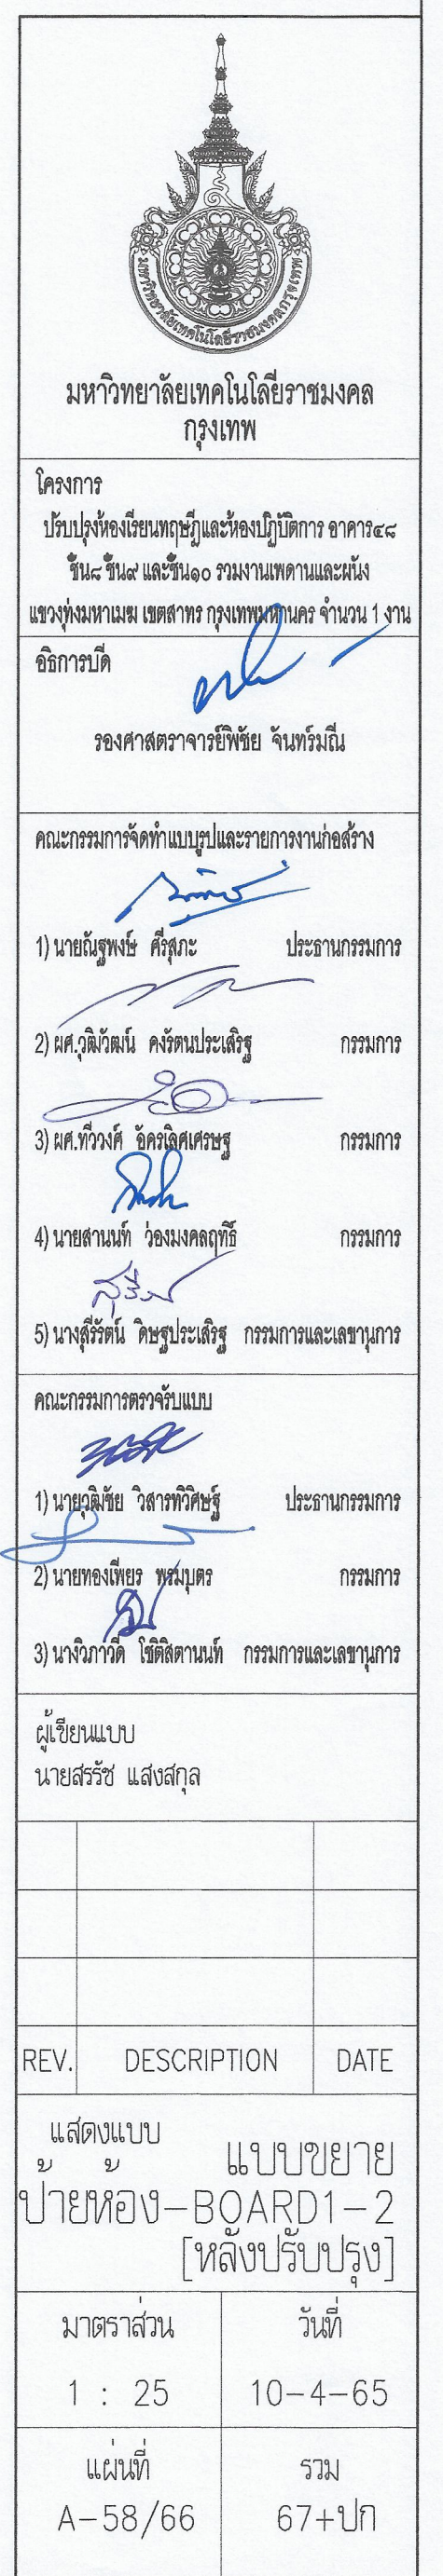 มหาวิทยาลัยเทคโนโลยีราชมงคลกรุงเทพ
มหาวิทยาลัยเทคโนโลยีราชมงคล
กรุงเทพ
โครงการ
ปรับปรุงห้องเรียนทฤษฎีและห้องปฏิบัติการ อาคาร๔๘
ชั้น๘ ชั้น๙ และชั้น๑๐ รวมงานเพดานและผนัง
แขวงทุ่งมหาเมฆ เขตสาทร กรุงเทพมหานคร จำนวน 1 งาน
อธิการบดี
รองศาสตราจารย์พิชัย จันทร์มณี
คณะกรรมการจัดทำแบบรูปและรายการงานก่อสร้าง
1) นายณัฐพงษ์ ศิริสุภะ ประธานกรรมการ
2) ผศ.วุฒิวัฒน์ คงรัตนประเสริฐ กรรมการ
3) ผศ.ทวีวงศ์ อัครเลิศเศรษฐ กรรมการ
4) นายสานนท์ ว่องมงคลฤทธิ์ กรรมการ
5) นางสุรีรัตน์ ดิษฐประเสริฐ กรรมการและเลขานุการ
คณะกรรมการตรวจรับแบบ
1) นายวุฒิชัย วิสารทวิศิษฐ์ ประธานกรรมการ
2) นายทองเพียร พรมบุตร กรรมการ
3) นางวิภาวดี โชติสิตานนท์ กรรมการและเลขานุการ
ผู้เขียนแบบ
นายสรรัช แสงสกุล
REV. DESCRIPTION DATE
แสดงแบบ แบบขยาย
ป้ายห้อง-BOARD1-2
[หลังปรับปรุง]
มาตราส่วน วันที่
1 : 25 10-4-65
แผ่นที่ รวม
A-58/66 67+ปก